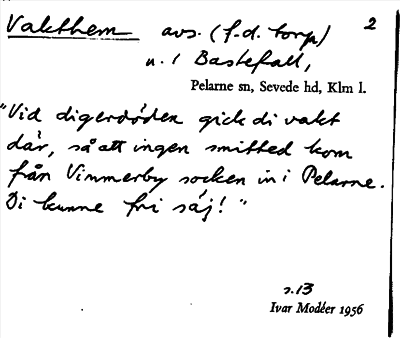 Vakthem avs. (f.d. torp) 2
u. 1 Bastefall,
Pelarne sn, Sevede hd, Klm l.
"Vid digerdöden gick di vakt
där, så att ingen smitted kom
från Vimmerby socken in i Pelarne.
Di kunne fri säj!"
s.13
Ivar Modéer 1956